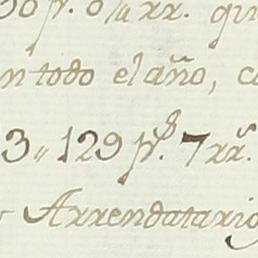 30 p.s 0/a rr. qu
n todo el año, c
3,, 129 p.s 7 rr.s
Arrendatario